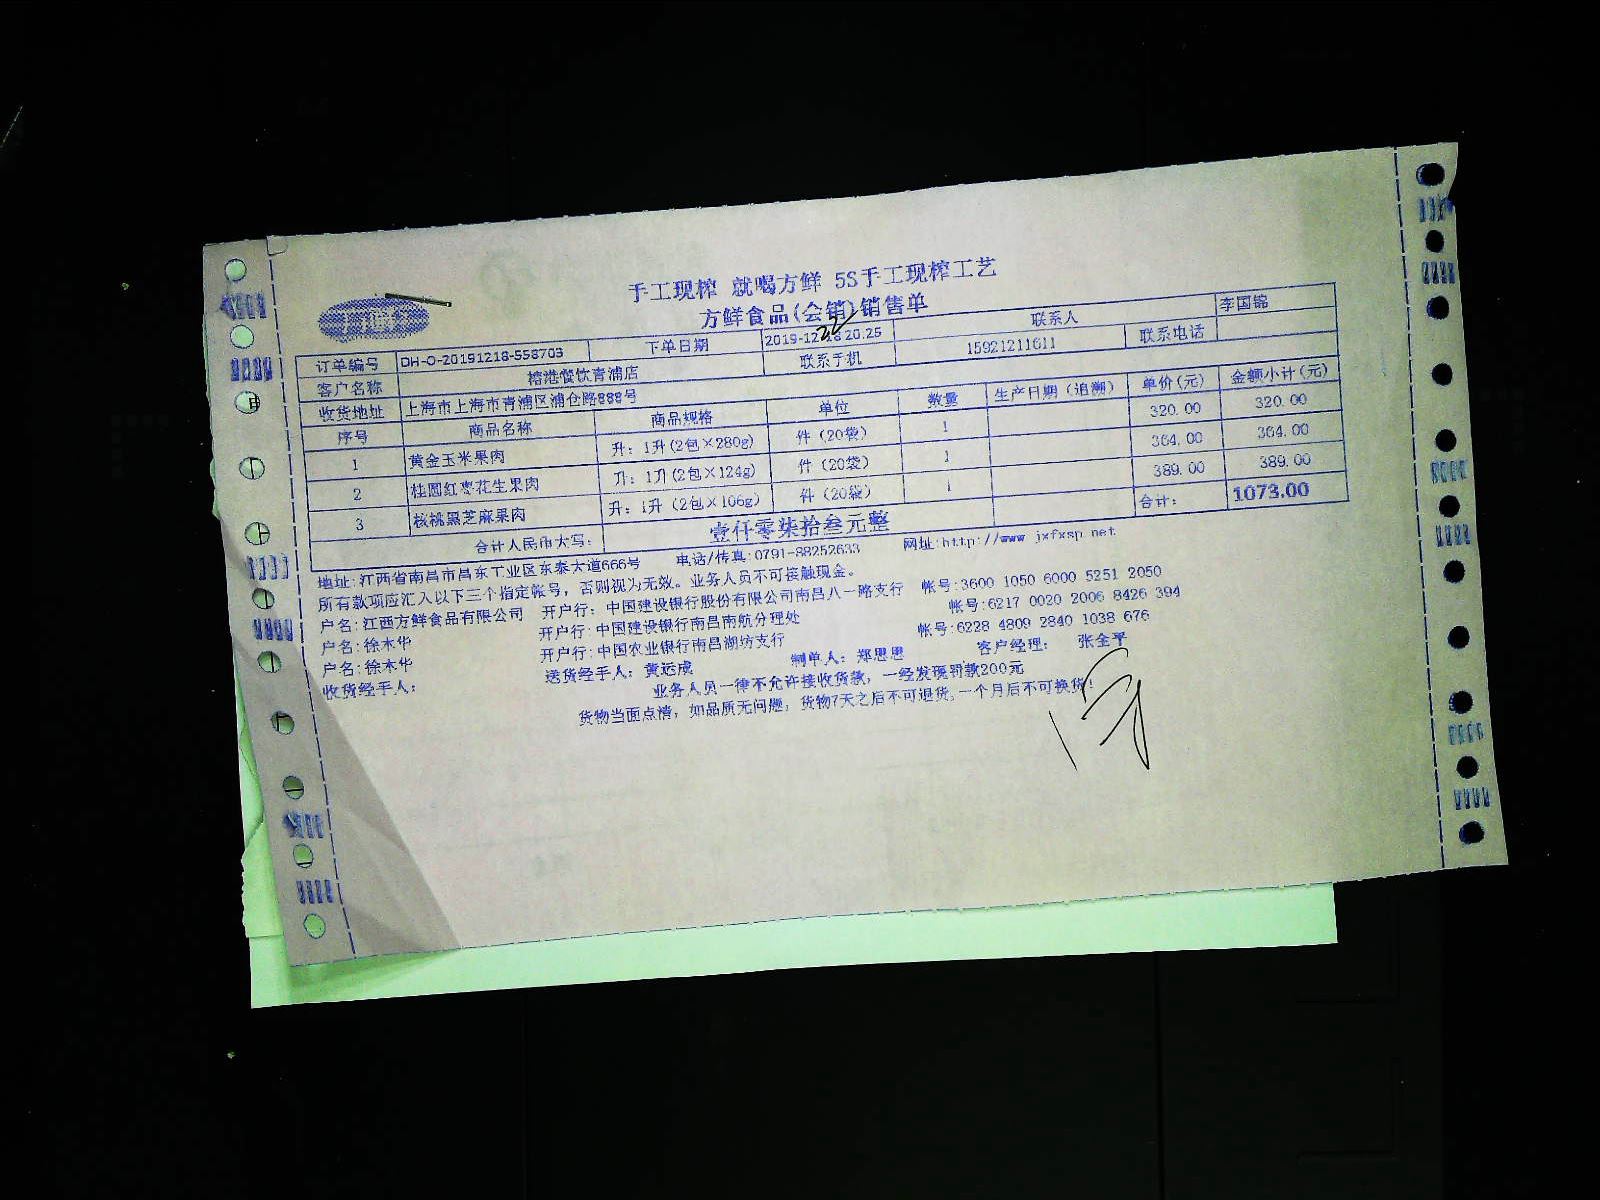 手工现榨 就喝方鲜 5S手工现榨工艺
方鲜食品(会销)销售单
订单编号 DH-O-20191218-558703 下单日期 2019-12-18 20:25 联系人 李国锦
22
客户名称 榕港餐饮青浦店 联系手机 15921211611 联系电话
收货地址 上海市上海市青浦区浦仓路888号
序号 商品名称 商品规格 单位 数量 生产日期(追溯) 单价(元) 金额小计(元)
1 黄金玉米果肉 升:1升(2包×280g) 件(20袋) 1 320.00 320.00
2 桂圆红枣花生果肉 升:1升(2包×124g) 件(20袋) 1 364.00 364.00
3 核桃黑芝麻果肉 升:1升(2包×106g) 件(20袋) 1 389.00 389.00
合计人民币大写: 壹仟零柒拾叁元整 合计: 1073.00
地址:江西省南昌市昌东工业区东泰大道666号 电话/传真:0791-88252633 网址:http://www.jxfxsp.net
所有款项应汇入以下三个指定帐号,否则视为无效。业务人员不可接触现金。
户名:江西方鲜食品有限公司 开户行:中国建设银行股份有限公司南昌八一路支行 帐号:3600 1050 6000 5251 2050
户名:徐木华 开户行:中国建设银行南昌南航分理处 帐号:6217 0020 2006 8426 394
户名:徐木华 开户行:中国农业银行南昌湖坊支行 帐号:6228 4809 2840 1038 676
收货经手人: 送货经手人:黄远成 制单人:郑思思 客户经理: 张全平
业务人员一律不允许接收货款,一经发现罚款200元
货物当面点清,如品质无问题,货物7天之后不可退货,一个月后不可换货!